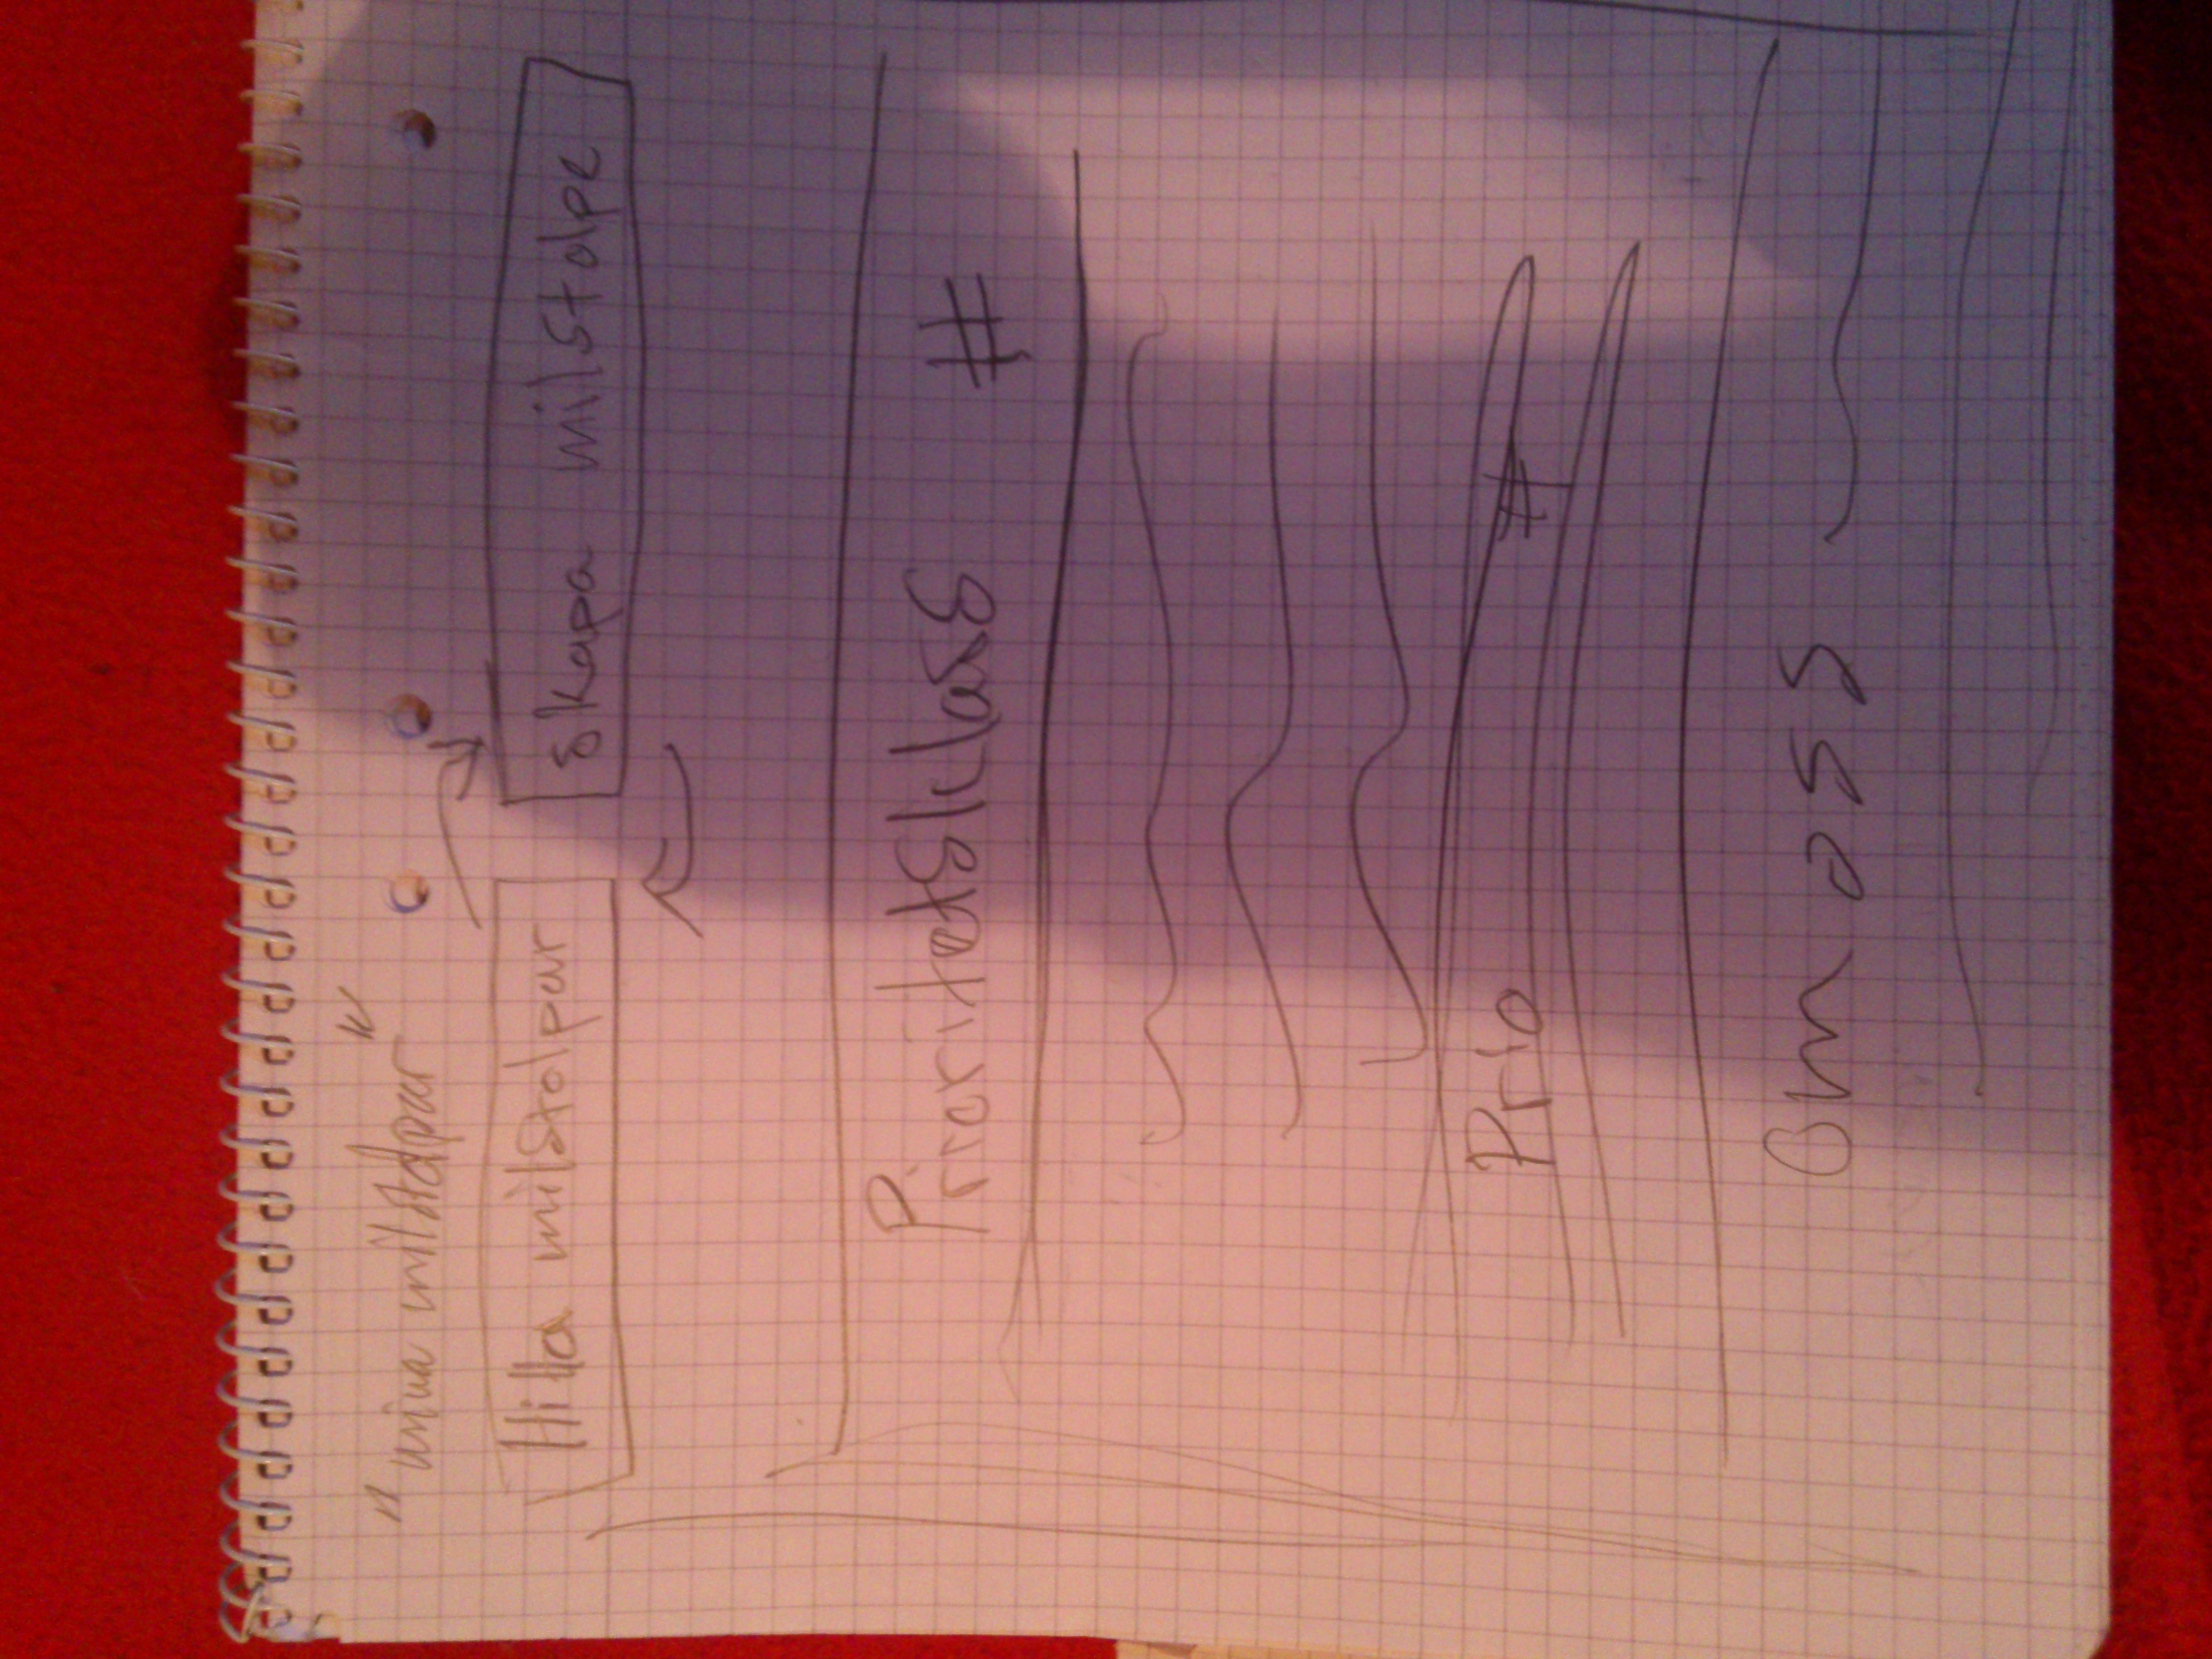 "mina milstolpar"
Hitta milstolpar
skapa milstolpe
Prioritetsklass #
Prio #
Om oss